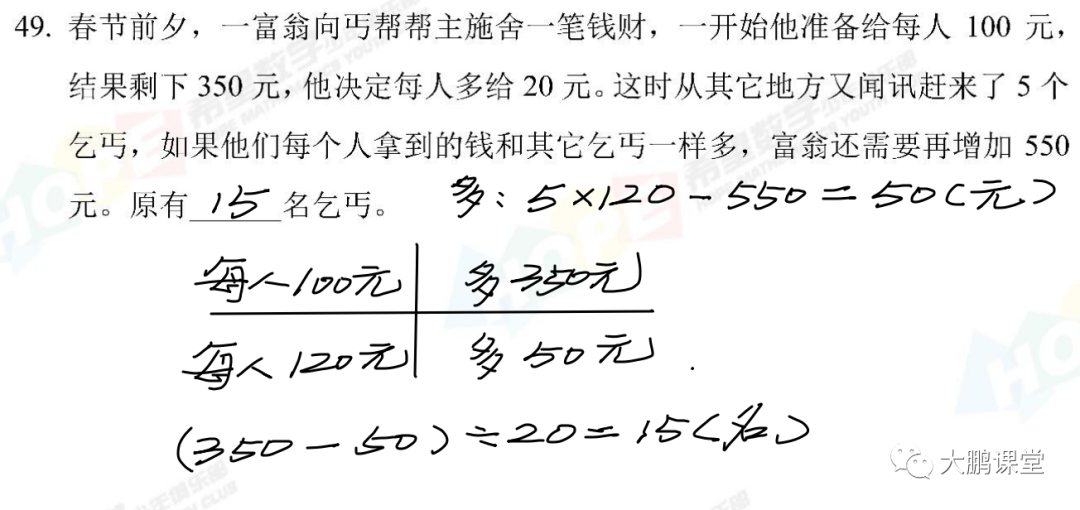 49. 春节前夕，一富翁向丐帮帮主施舍一笔钱财，一开始他准备给每人 100 元，
结果剩下 350 元，他决定每人多给 20 元。这时从其它地方又闻讯赶来了 5 个
乞丐，如果他们每个人拿到的钱和其它乞丐一样多，富翁还需要再增加 550
元。原有 15 名乞丐。 多：5×120－550＝50（元）
每人100元 多350元
每人120元 多50元.
(350－50)÷20＝15(名)
大鹏课堂